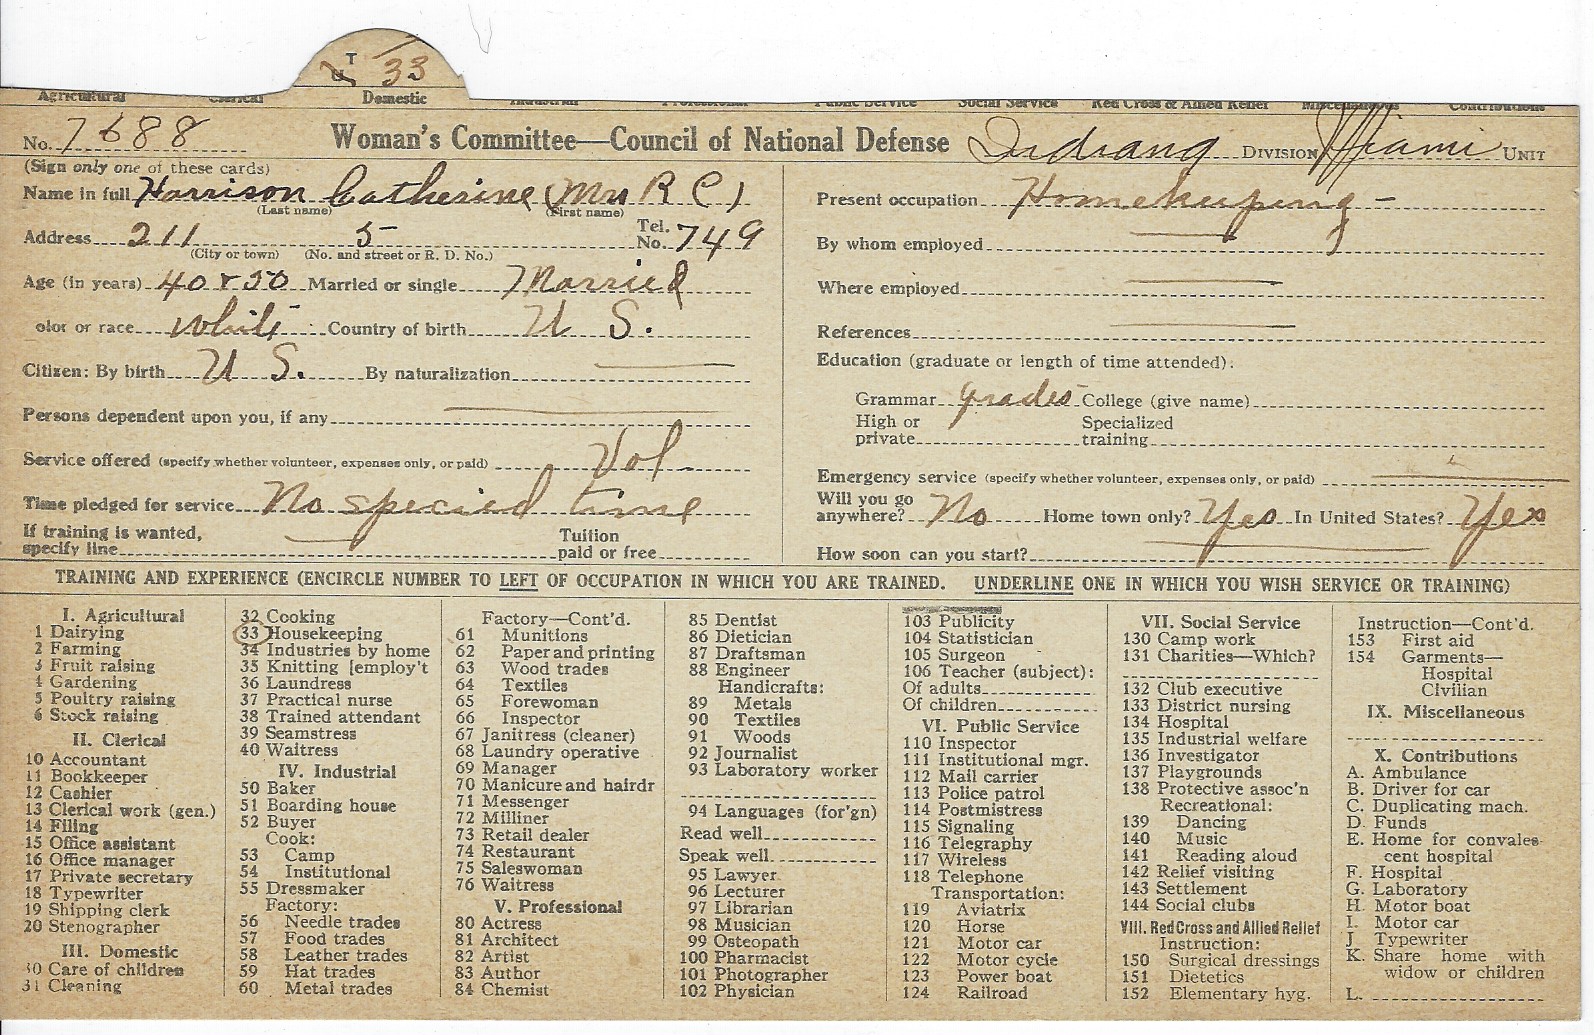 T 33
Agricultural Clerical Domestic Industrial Professional Public Service Social Service Red Cross & Allied Relief Miscellaneous Contributions
No. 7688 Woman's Committee—Council of National Defense Indiana DIVISION Miami UNIT
(Sign only one of these cards)
Name in full Harrison Catherine (Mrs R C)
(Last name) (First name)
Address 211 5 Tel. No. 749
(City or town) (No. and street or R. D. No.)
Age (in years) 40 & 50 Married or single Married
olor or race White Country of birth U S.
Citizen: By birth U S. By naturalization
Persons dependent upon you, if any
Service offered (specify whether volunteer, expenses only, or paid) Vol
Time pledged for service No specied time
If training is wanted, specify line Tuition paid or free
Present occupation Homekeeping
By whom employed
Where employed
References
Education (graduate or length of time attended):
Grammar grades College (give name)
High or private Specialized training
Emergency service (specify whether volunteer, expenses only, or paid)
Will you go anywhere? No Home town only? Yes In United States? Yes
How soon can you start?
TRAINING AND EXPERIENCE (ENCIRCLE NUMBER TO LEFT OF OCCUPATION IN WHICH YOU ARE TRAINED. UNDERLINE ONE IN WHICH YOU WISH SERVICE OR TRAINING)
I. Agricultural
1 Dairying
2 Farming
3 Fruit raising
4 Gardening
5 Poultry raising
6 Stock raising
II. Clerical
10 Accountant
11 Bookkeeper
12 Cashier
13 Clerical work (gen.)
14 Filing
15 Office assistant
16 Office manager
17 Private secretary
18 Typewriter
19 Shipping clerk
20 Stenographer
III. Domestic
30 Care of children
31 Cleaning
32 Cooking
33 Housekeeping
34 Industries by home
35 Knitting [employ't
36 Laundress
37 Practical nurse
38 Trained attendant
39 Seamstress
40 Waitress
IV. Industrial
50 Baker
51 Boarding house
52 Buyer
Cook:
53 Camp
54 Institutional
55 Dressmaker
Factory:
56 Needle trades
57 Food trades
58 Leather trades
59 Hat trades
60 Metal trades
Factory—Cont'd.
61 Munitions
62 Paper and printing
63 Wood trades
64 Textiles
65 Forewoman
66 Inspector
67 Janitress (cleaner)
68 Laundry operative
69 Manager
70 Manicure and hairdr
71 Messenger
72 Milliner
73 Retail dealer
74 Restaurant
75 Saleswoman
76 Waitress
V. Professional
80 Actress
81 Architect
82 Artist
83 Author
84 Chemist
85 Dentist
86 Dietician
87 Draftsman
88 Engineer
Handicrafts:
89 Metals
90 Textiles
91 Woods
92 Journalist
93 Laboratory worker
94 Languages (for'gn)
Read well
Speak well
95 Lawyer
96 Lecturer
97 Librarian
98 Musician
99 Osteopath
100 Pharmacist
101 Photographer
102 Physician
103 Publicity
104 Statistician
105 Surgeon
106 Teacher (subject):
Of adults
Of children
VI. Public Service
110 Inspector
111 Institutional mgr.
112 Mail carrier
113 Police patrol
114 Postmistress
115 Signaling
116 Telegraphy
117 Wireless
118 Telephone
Transportation:
119 Aviatrix
120 Horse
121 Motor car
122 Motor cycle
123 Power boat
124 Railroad
VII. Social Service
130 Camp work
131 Charities—Which?
132 Club executive
133 District nursing
134 Hospital
135 Industrial welfare
136 Investigator
137 Playgrounds
138 Protective assoc'n
Recreational:
139 Dancing
140 Music
141 Reading aloud
142 Relief visiting
143 Settlement
144 Social clubs
VIII. Red Cross and Allied Relief
Instruction:
150 Surgical dressings
151 Dietetics
152 Elementary hyg.
Instruction—Cont'd.
153 First aid
154 Garments—
Hospital
Civilian
IX. Miscellaneous
X. Contributions
A. Ambulance
B. Driver for car
C. Duplicating mach.
D. Funds
E. Home for convales-
cent hospital
F. Hospital
G. Laboratory
H. Motor boat
I. Motor car
J Typewriter
K. Share home with
widow or children
L.